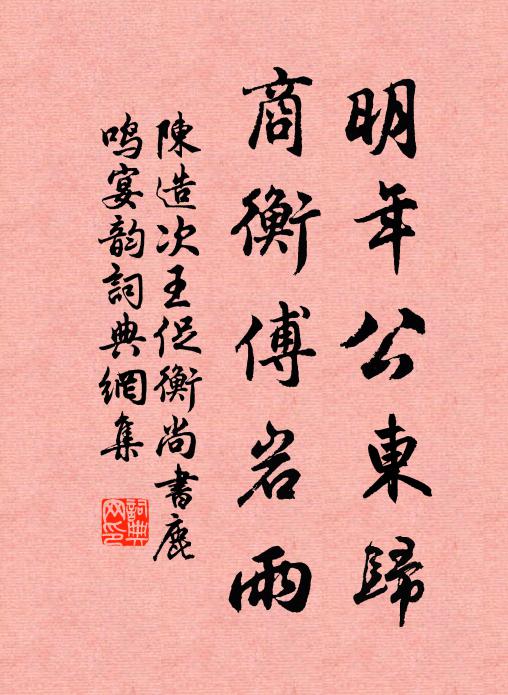 明年公東歸
商衡傅岩雨
陳造次王促衡尚書鹿
鳴宴韵詞典網集
詞典
网印